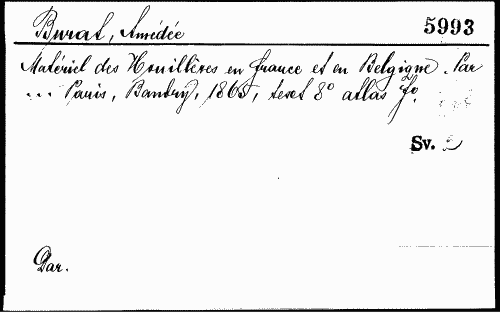 Burat, Amédée 5993
Matériel des Houillères en France et en Belgique. Par
... Paris, Baudry, 1865, text 8° atlas f°.
Sv. 2
Dar.